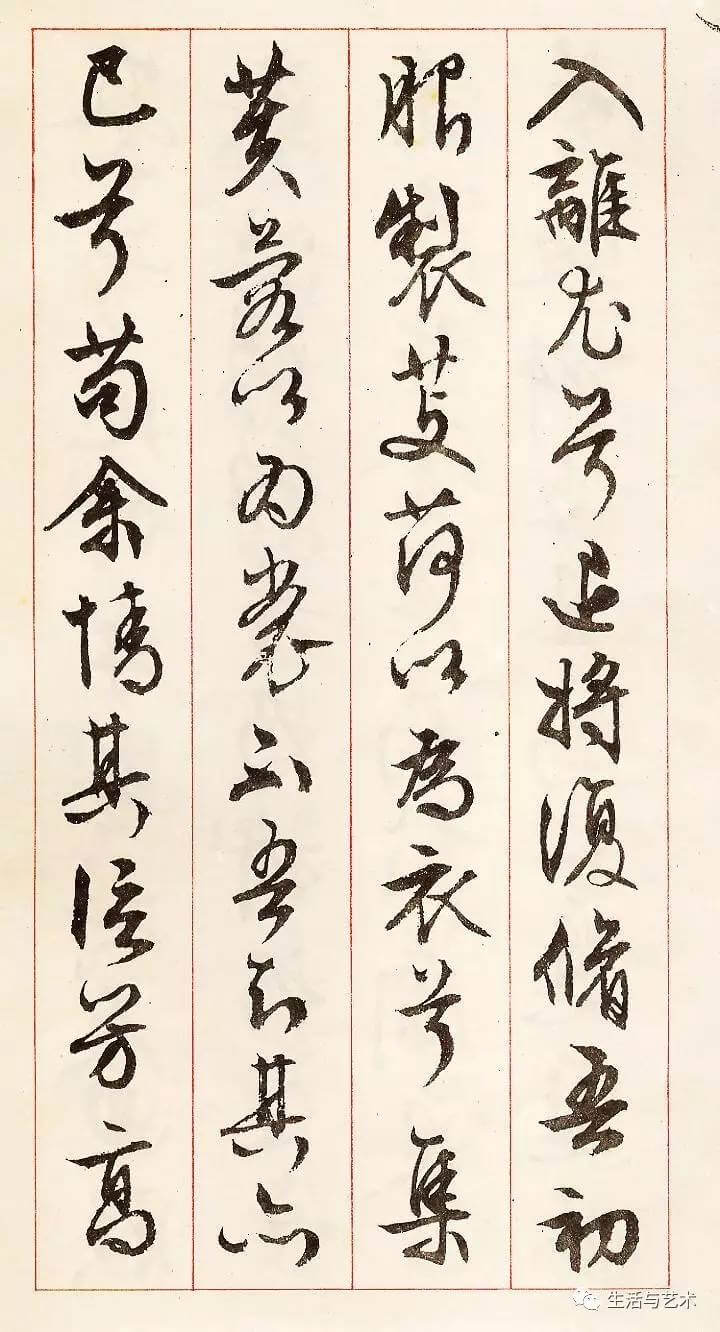 入離尤兮退將復脩吾初
服製芰荷以為衣兮集
芙蓉以為裳不吾知其亦
已兮苟余情其信芳高
生活与艺术